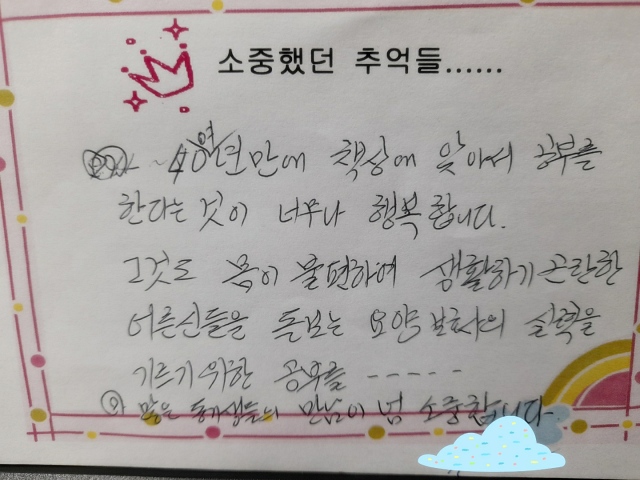 소중했던 추억들......
~40년만에 책상에 앉아서 공부를
한다는 것이 너무나 행복합니다.
그것도 몸이 불편하여 생활하기 곤란한
어른신들을 돌보는 요양보호사의 실력을
기르기위한 공부를 -----
많은 동기생들의 만남이 넘 소중합니다